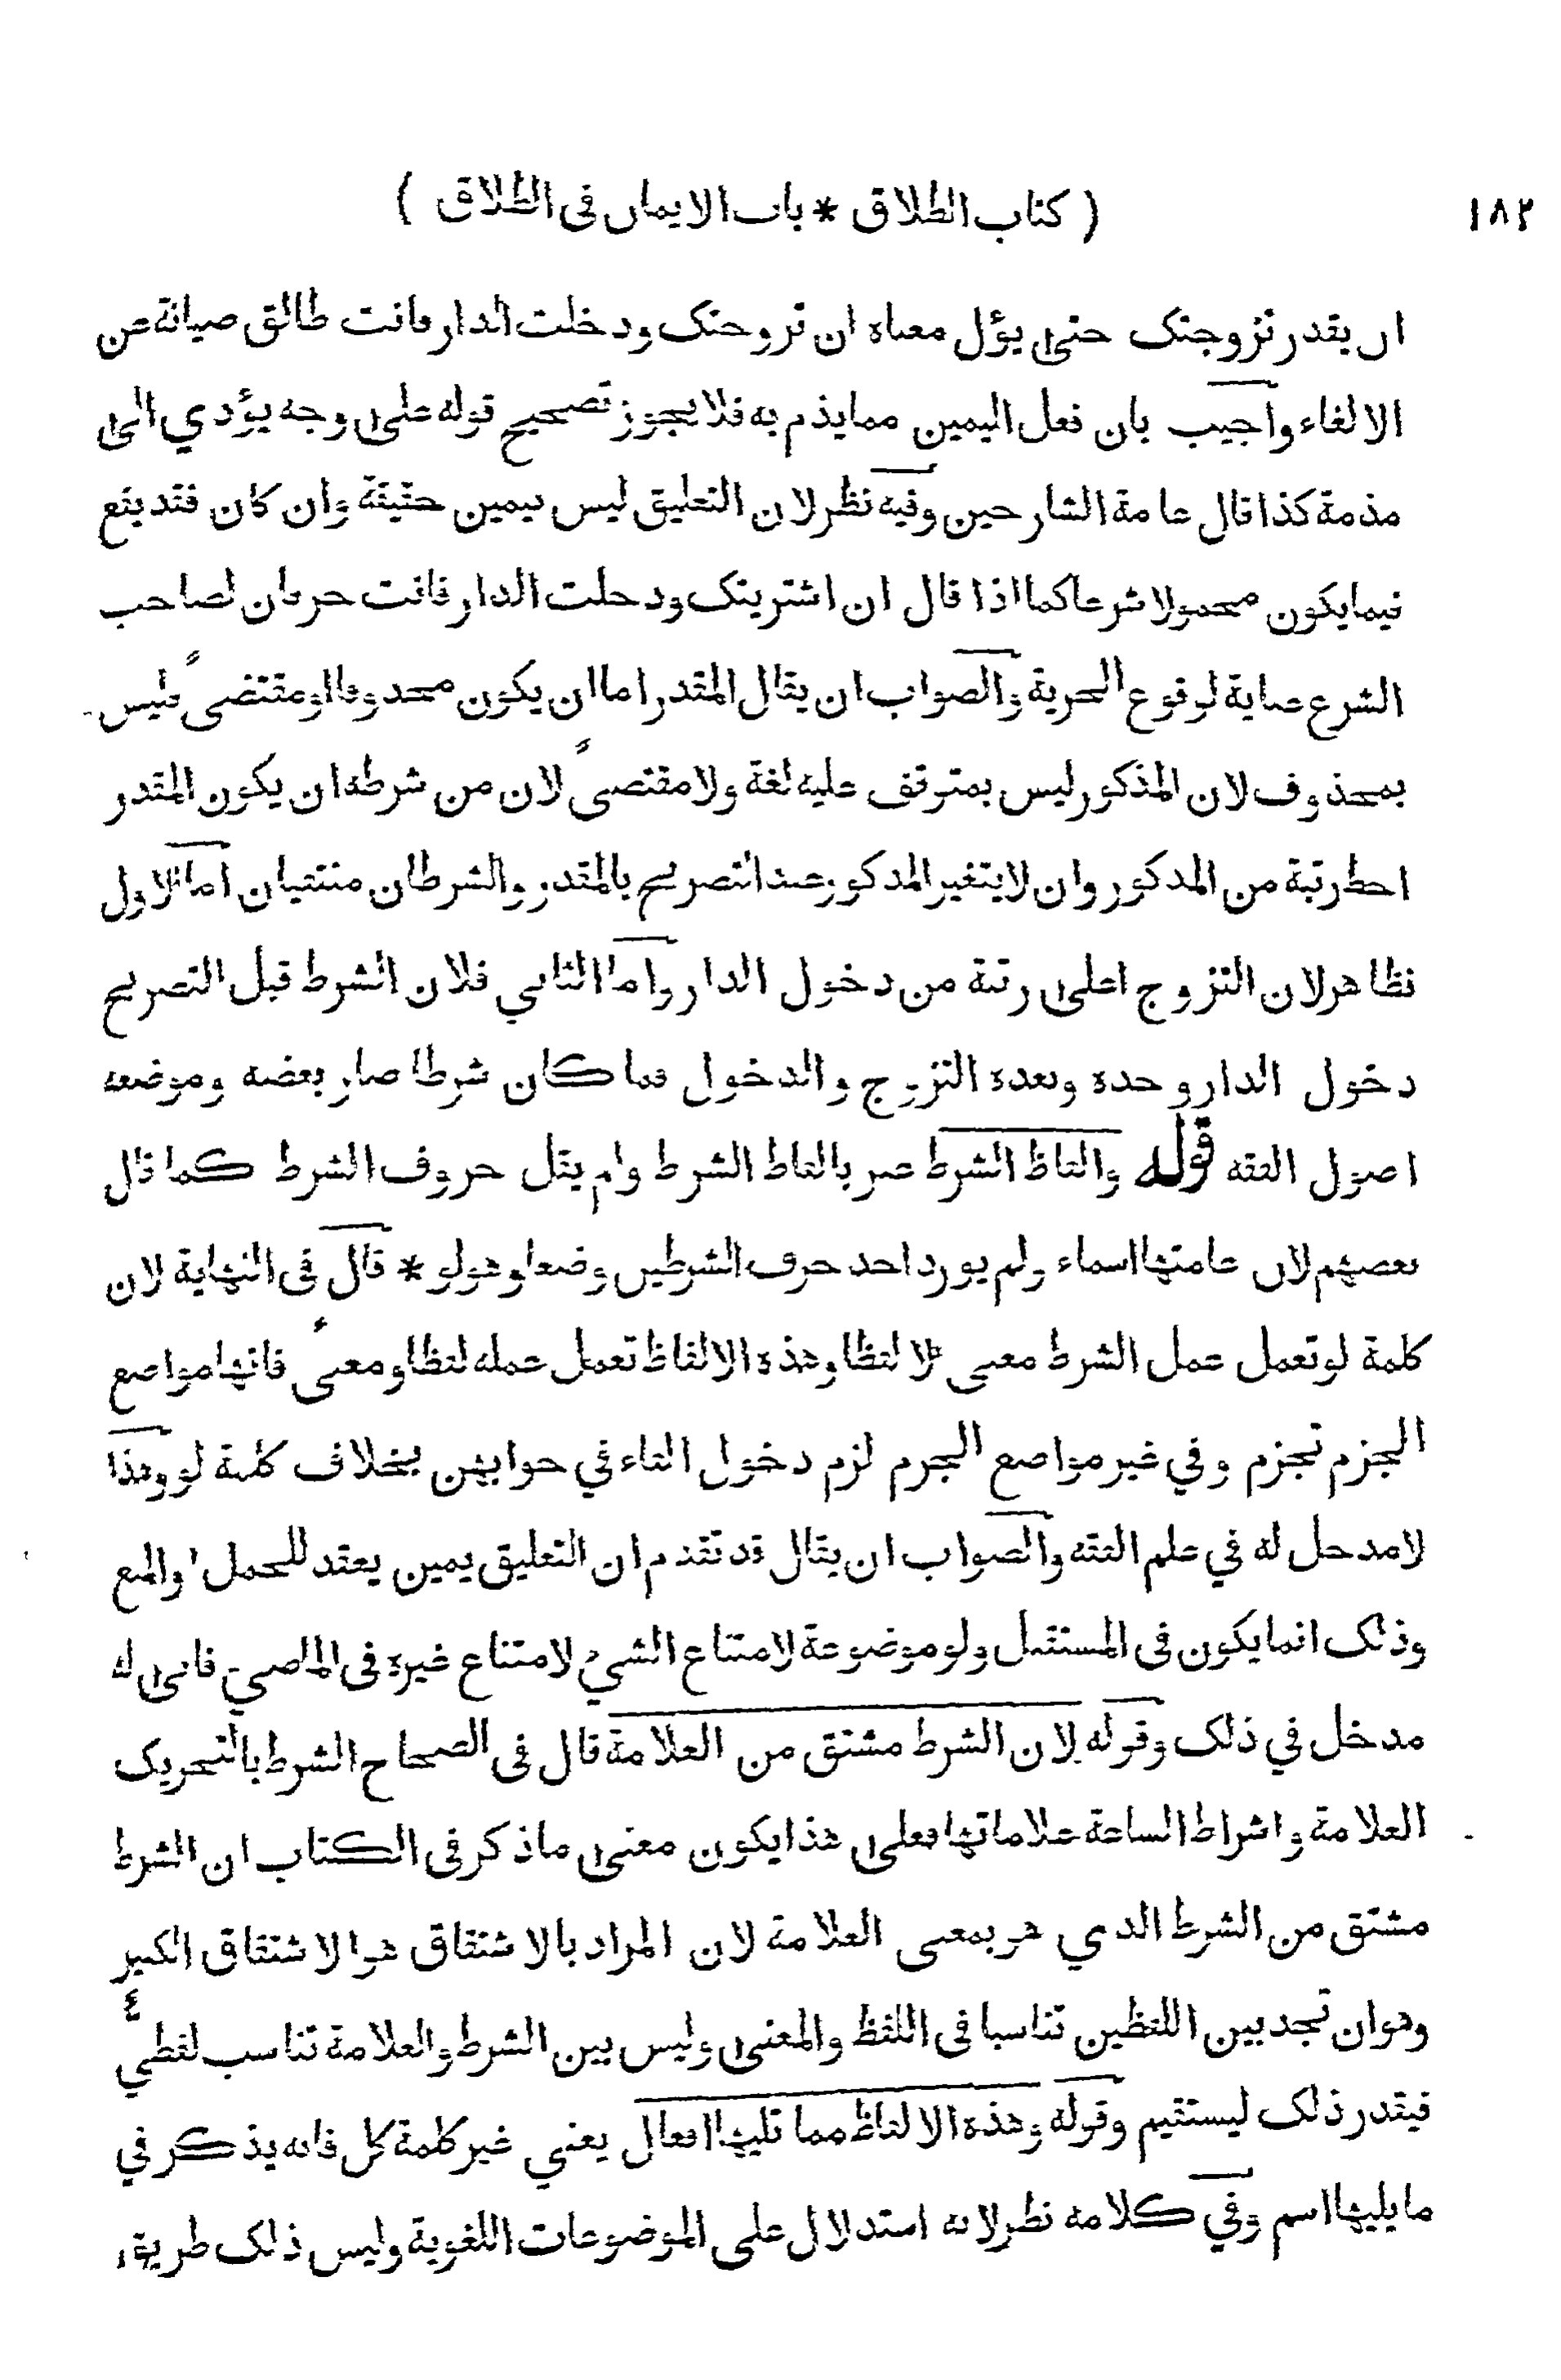 ١٨٢ ( كتاب الطلاق * باب الايمان فى الطلاق )
ان يقدر تزوجتك حتى يؤل معناه ان تزوجتك ودخلت الدار فانت طالق صيانة عن
الالغاء واجيب بان فعل اليمين مما يذم به فلا يجوز تصحيح قوله على وجه يؤدي الى
مذمة كذا قال عامة الشارحين وفيه نظر لان التعليق ليس بيمين حقيقة وان كان فقد يقع
فيما يكون محمولا شرعا كما اذا قال ان اشتريتك ودخلت الدار فانت حر فان لصاحب
الشرع عناية لوقوع الحرية والصواب ان يقال المقدر اما ان يكون محذوفا او مقتضىً فليس
بمحذوف لان المذكور ليس بمتوقف عليه لغة ولا مقتضىً لان من شرطه ان يكون المقدر
احط رتبة من المذكور وان لا يتغير المذكور عند التصريح بالمقدر والشرطان منتفيان اما الاول
فظاهر لان التزوج اعلى رتبة من دخول الدار واما الثاني فلان الشرط قبل التصريح
دخول الدار وحده وبعده التزوج والدخول فما كان شرطا صار بعضه وموضعه
اصول الفقه قوله والفاظ الشرط عبر بالفاظ الشرط ولم يقل حروف الشرط كما قال
بعضهم لان عامتها اسماء ولم يورد احد حرف الشرطين وضعا وهو لو * قال فى النهاية لان
كلمة لو تعمل عمل الشرط معنى لا لفظا وهذه الالفاظ تعمل عمله لفظا ومعنىً فانها مواضع
الجزم تجزم وفي غير مواضع الجزم لزم دخول الفاء في جوابهن بخلاف كلمة لو وهذا
لا مدخل له في علم الفقه والصواب ان يقال قد تقدم ان التعليق يمين يعقد للحمل او المنع
وذلك انما يكون فى المستقبل ولو موضوعة لامتناع الشيء لامتناع غيره فى الماضي فانى له
مدخل في ذلك وقوله لان الشرط مشتق من العلامة قال فى الصحاح الشرط بالتحريك
العلامة واشراط الساعة علاماتها فعلى هذا يكون معنى ما ذكر فى الكتاب ان الشرط
مشتق من الشرط الذي هو بمعنى العلامة لان المراد بالاشتقاق هو الاشتقاق الكبير
وهو ان تجد بين اللفظين تناسبا فى اللفظ والمعنى وليس بين الشرط والعلامة تناسب لفظي
فيقدر ذلك ليستقيم وقوله وهذه الالفاظ مما تليها افعال يعني غير كلمة كل فانه يذكر في
ما يليها اسم وفي كلامه نظر لانه استدلال على الموضوعات اللغوية وليس ذلك طريق